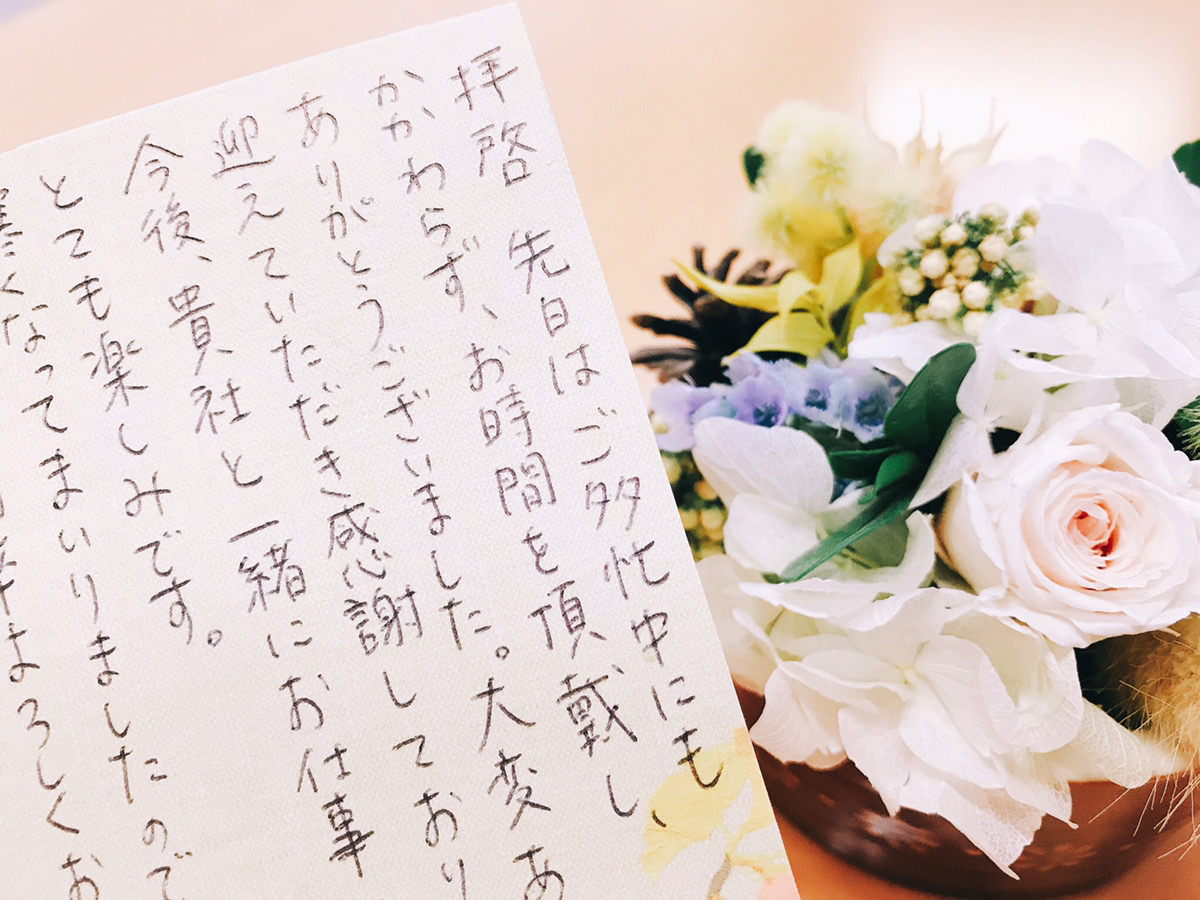 拝啓 先日はご多忙中にも
かかわらず、お時間を頂戴し、
ありがとうございました。大変あ
迎えていただき感謝しており
今後、貴社と一緒にお仕事
とても楽しみです。
寒くなってまいりましたので
よろしくお